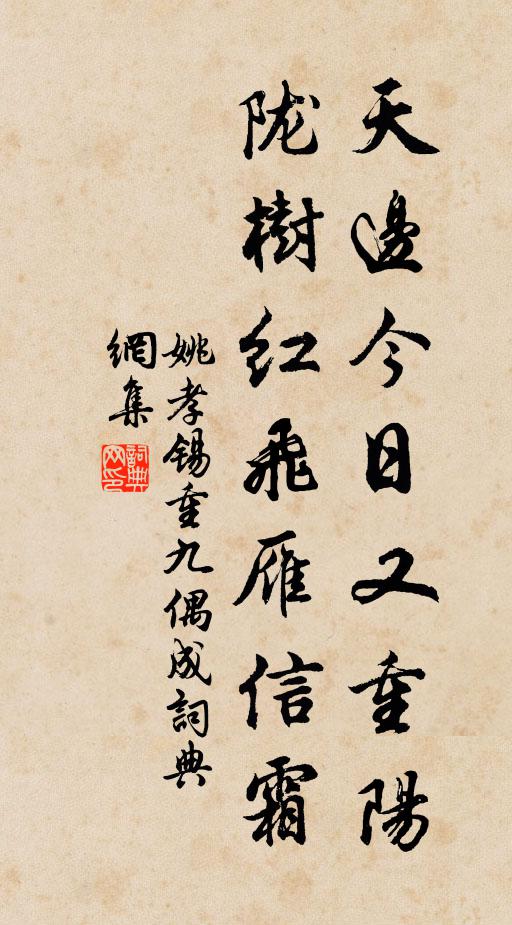 天邊今日又重陽
陇樹紅飛雁信霜
姚孝锡重九偶成詞典
網集
詞典
网印